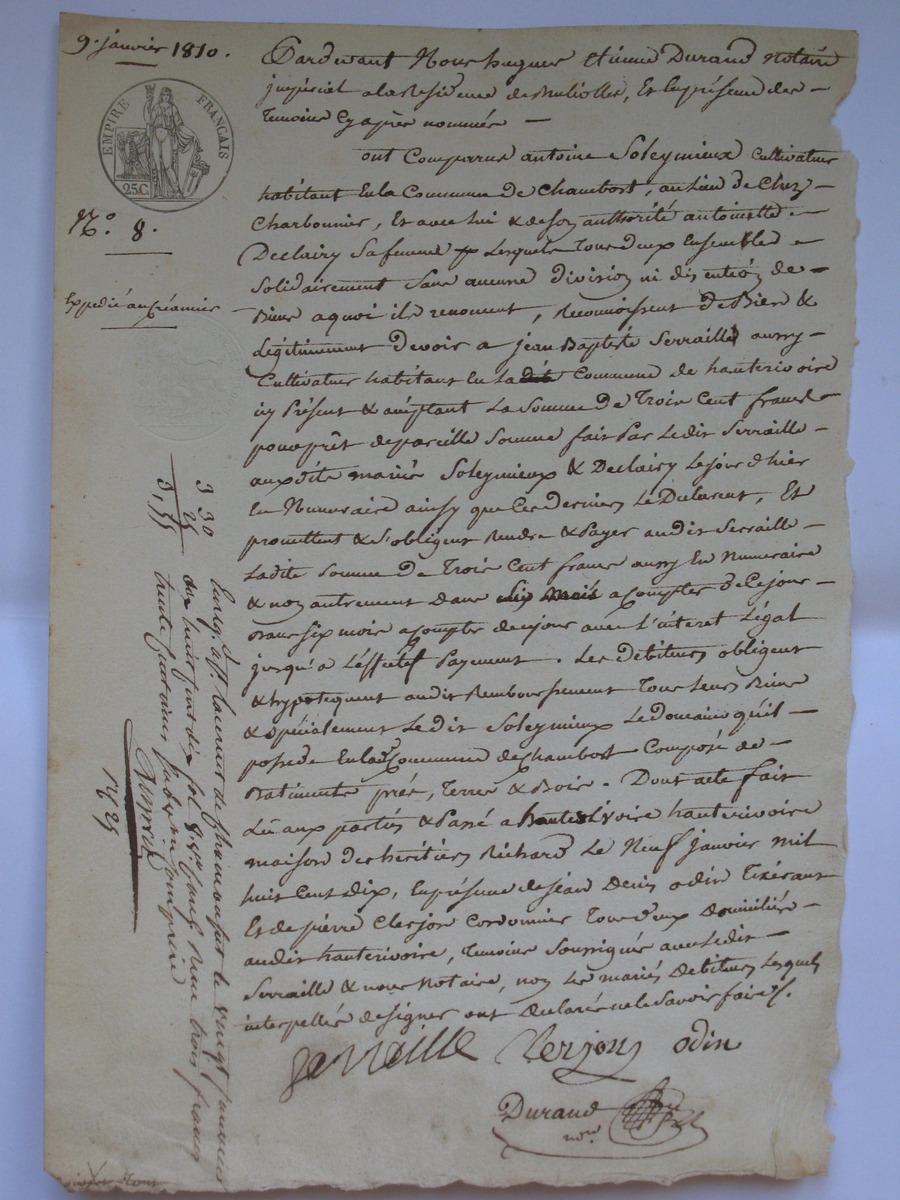 9. janvier 1810.
EMPIRE FRANÇAIS
25 C.
N.º 8.
Expedié au Créancier
Pardevant Nous hugues etienne Durand notaire
imperial a la Residence de, Et En présence des
Temoins Cy après nommés
ont Comparus antoine Soleymieux Cultivateur
habitant En la Commune De Chambost, au Lieu de Chez
Charbonnier, Et avec lui & de son authorité antoinette
Declairy Sa femme Lesquels Tous deux Ensembles
Solidairement Sans aucune Division ni discution de
Biens a quoi ils renoncent, Reconnoissent De Bien &
Légitimement Devoir a jean Baptiste Serraille aussy
Cultivateur habitant En la Commune de hauterivoire
icy Présent & acceptant La Somme De Trois Cent francs
pour prêt de pareille Somme fait Par Ledit Serraille
auxdits mariés Soleymieux & Declairy Le jour d'hier
En Numeraire ainsy que Ces Derniers Le Declarent, Et
promettent & S'obligent Rendre & Payer audit Serraille
Ladite Somme De Trois Cent francs aussy En Numeraire
& non autrement Dans six mois a Compter De Ce jour
Dans six mois a Compter de ce jour avec L'interet Légal
jusqu'a L'effectif Payement. Les Debiteurs obligent
& hypotequent audit Remboursement Tous Leurs Biens
& Spécialement Ledit Soleymieux Le Domaine qu'il
possede En lad. Commune de Chambost Composé de
Batiments prés, Terres & Bois. Dont acte fait
Lû aux parties & Passé a hauterivoire
maison des heritiers Richard Le Neuf janvier mil
huit Cent Dix, En présence de jean Denis odin Tixérant
Et de pierre Clerjon Cordonnier Tous deux Domiciliés
audit hauterivoire, Temoins Soussignés avec Ledit
Serraille & nous Notaire, non Les mariés Debiteurs Lesquels
interpellés de signer ont Declarés ne le Savoir faire
Serraille Clerjon odin
Durand
nore
3 30
25
3,55
Enreg. a St Laurent de Chamousset le vingt janvier
mil huit cent dix fol 8 Vo reçu trois francs
trente centimes Subvon comprise